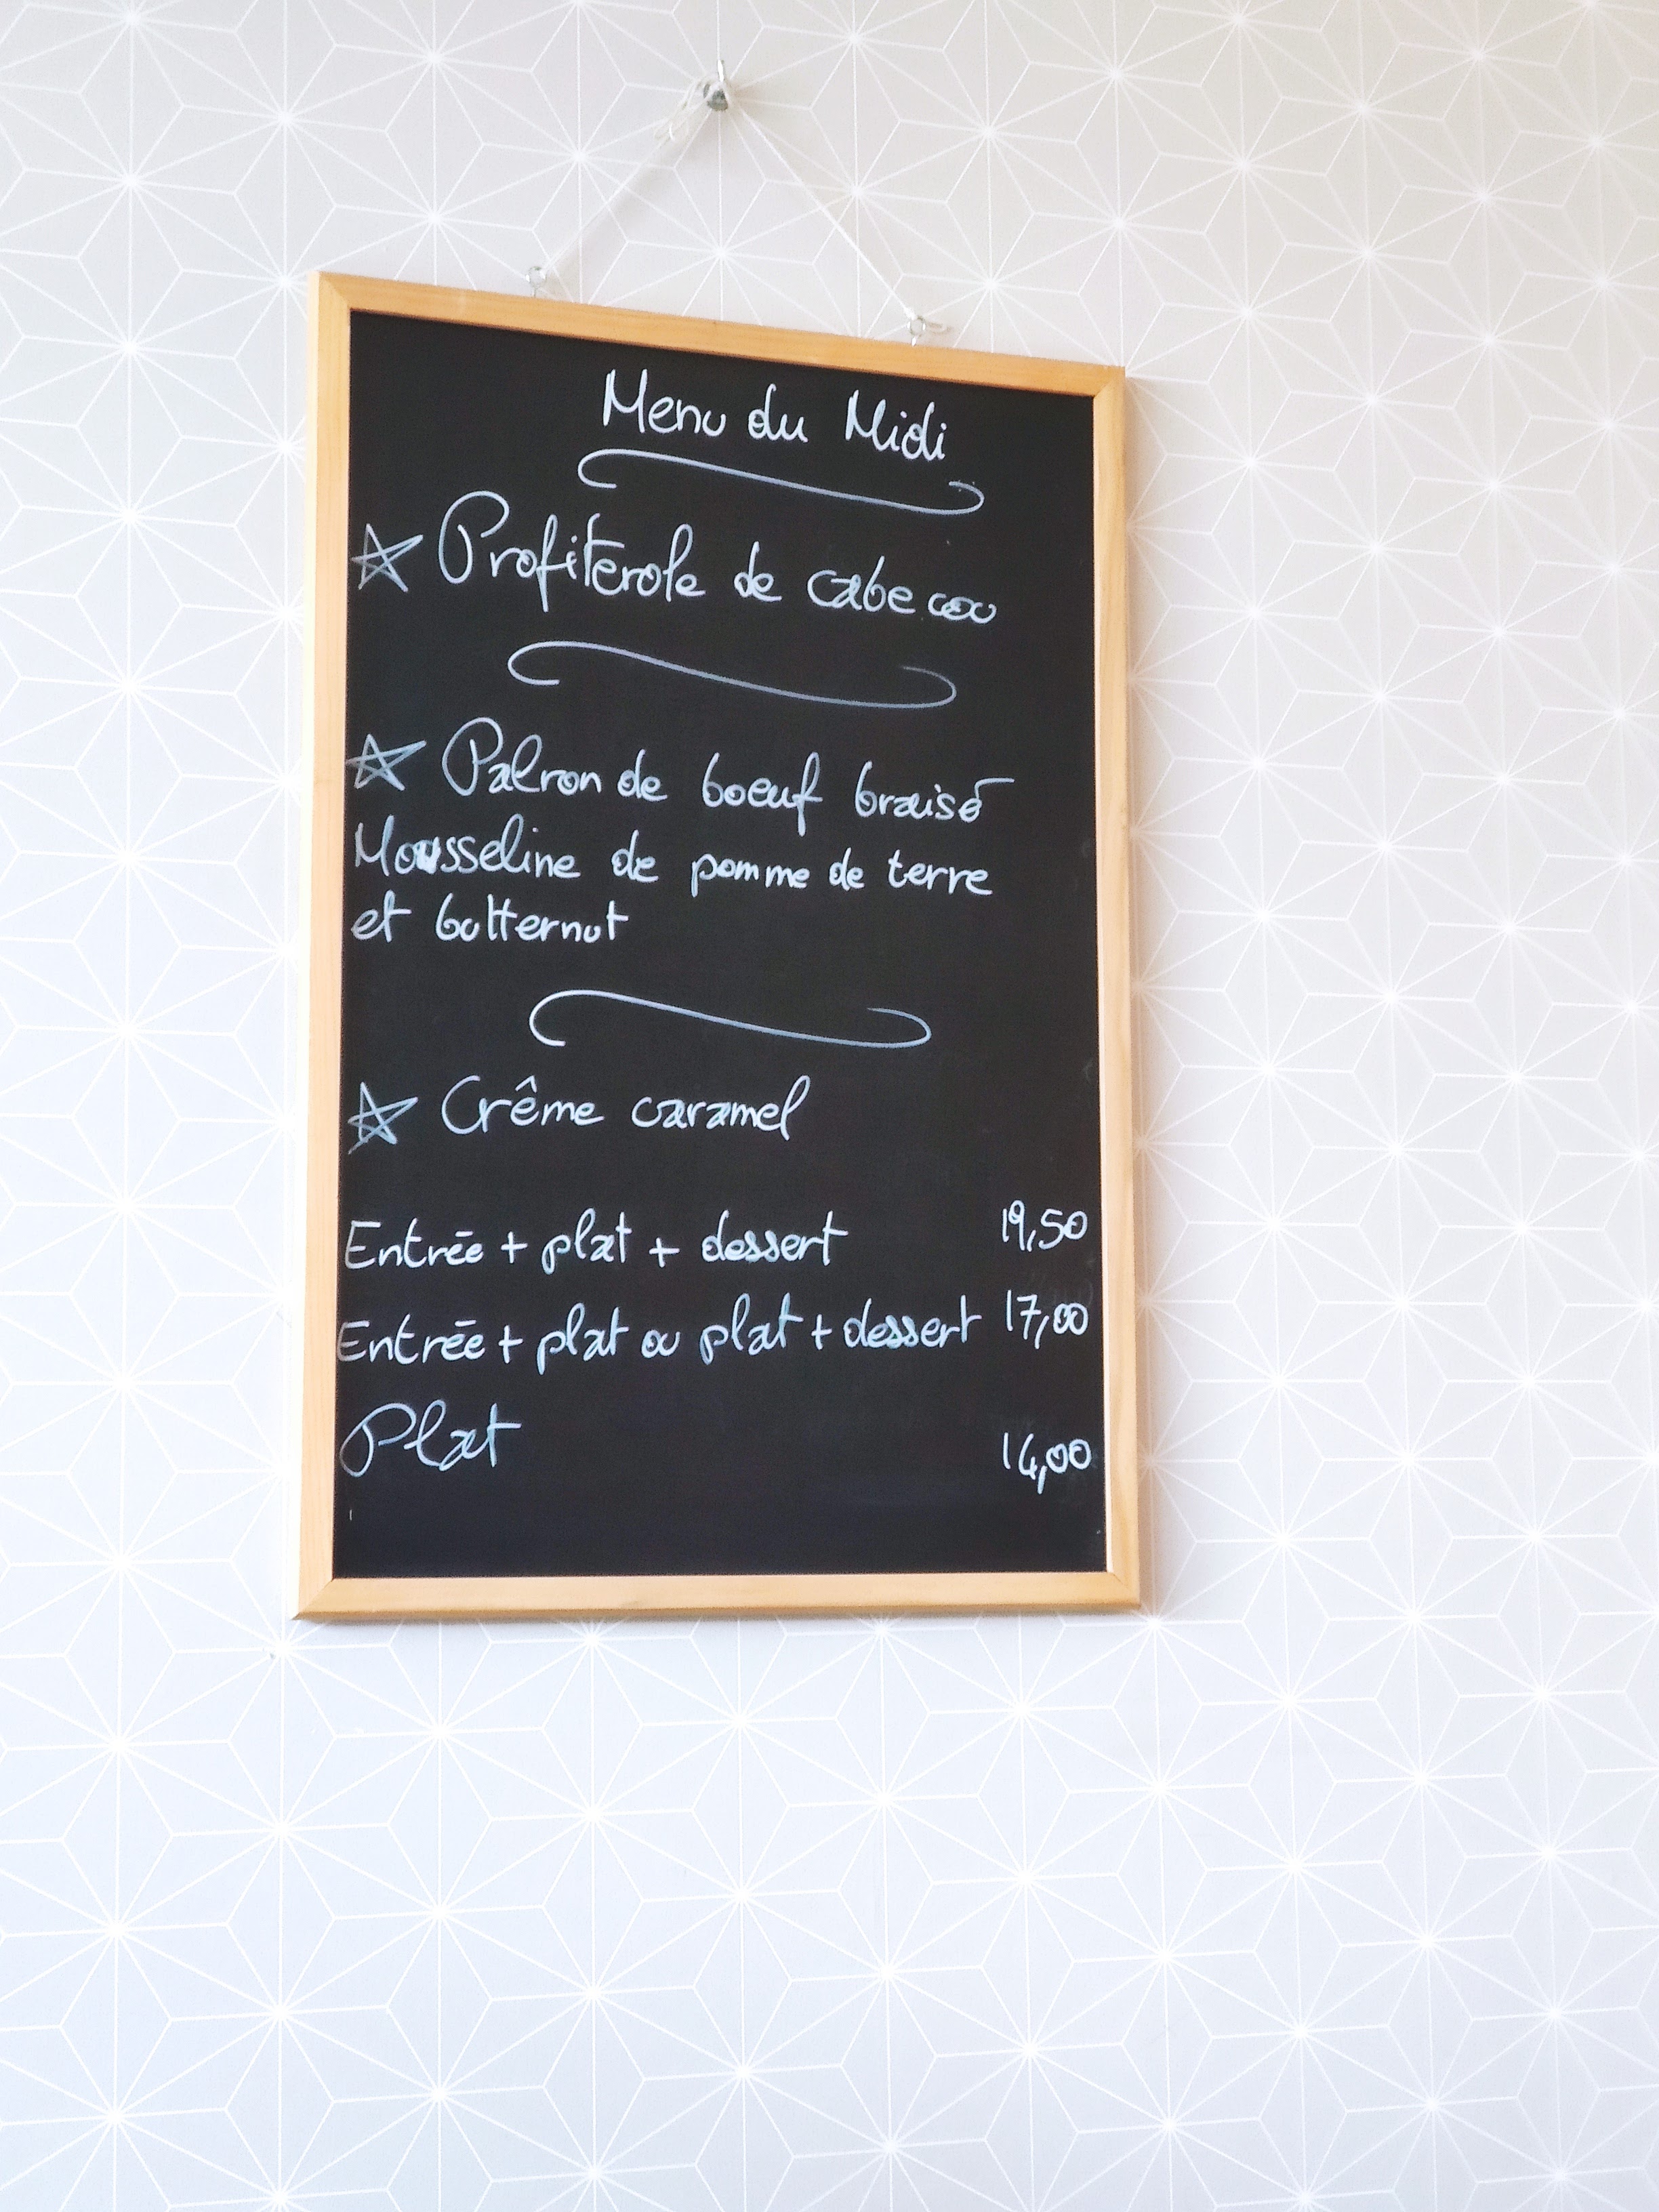 Menu du Midi
Profiterole de cabecou
Palron de boeuf braisé
Mousseline de pomme de terre
et butternut
Crême caramel
Entrée + plat + dessert 19,50
Entrée + plat ou plat + dessert 17,00
Plat 14,00